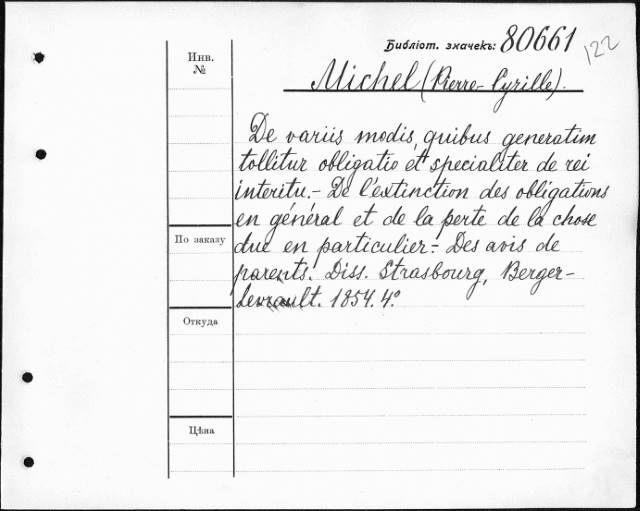 Библіот. значекъ: 80661
122
Инв.
№
Michel (Pierre-Cyrille).
De variis modis, quibus generatim
tollitur obligatio et specialiter de rei
interitu.- De l'extinction des obligations
en général et de la perte de la chose
По заказу
due en particulier.- Des avis de
parents. Diss. Strasbourg, Berger-
Levrault. 1854. 4º
Откуда
Цѣна